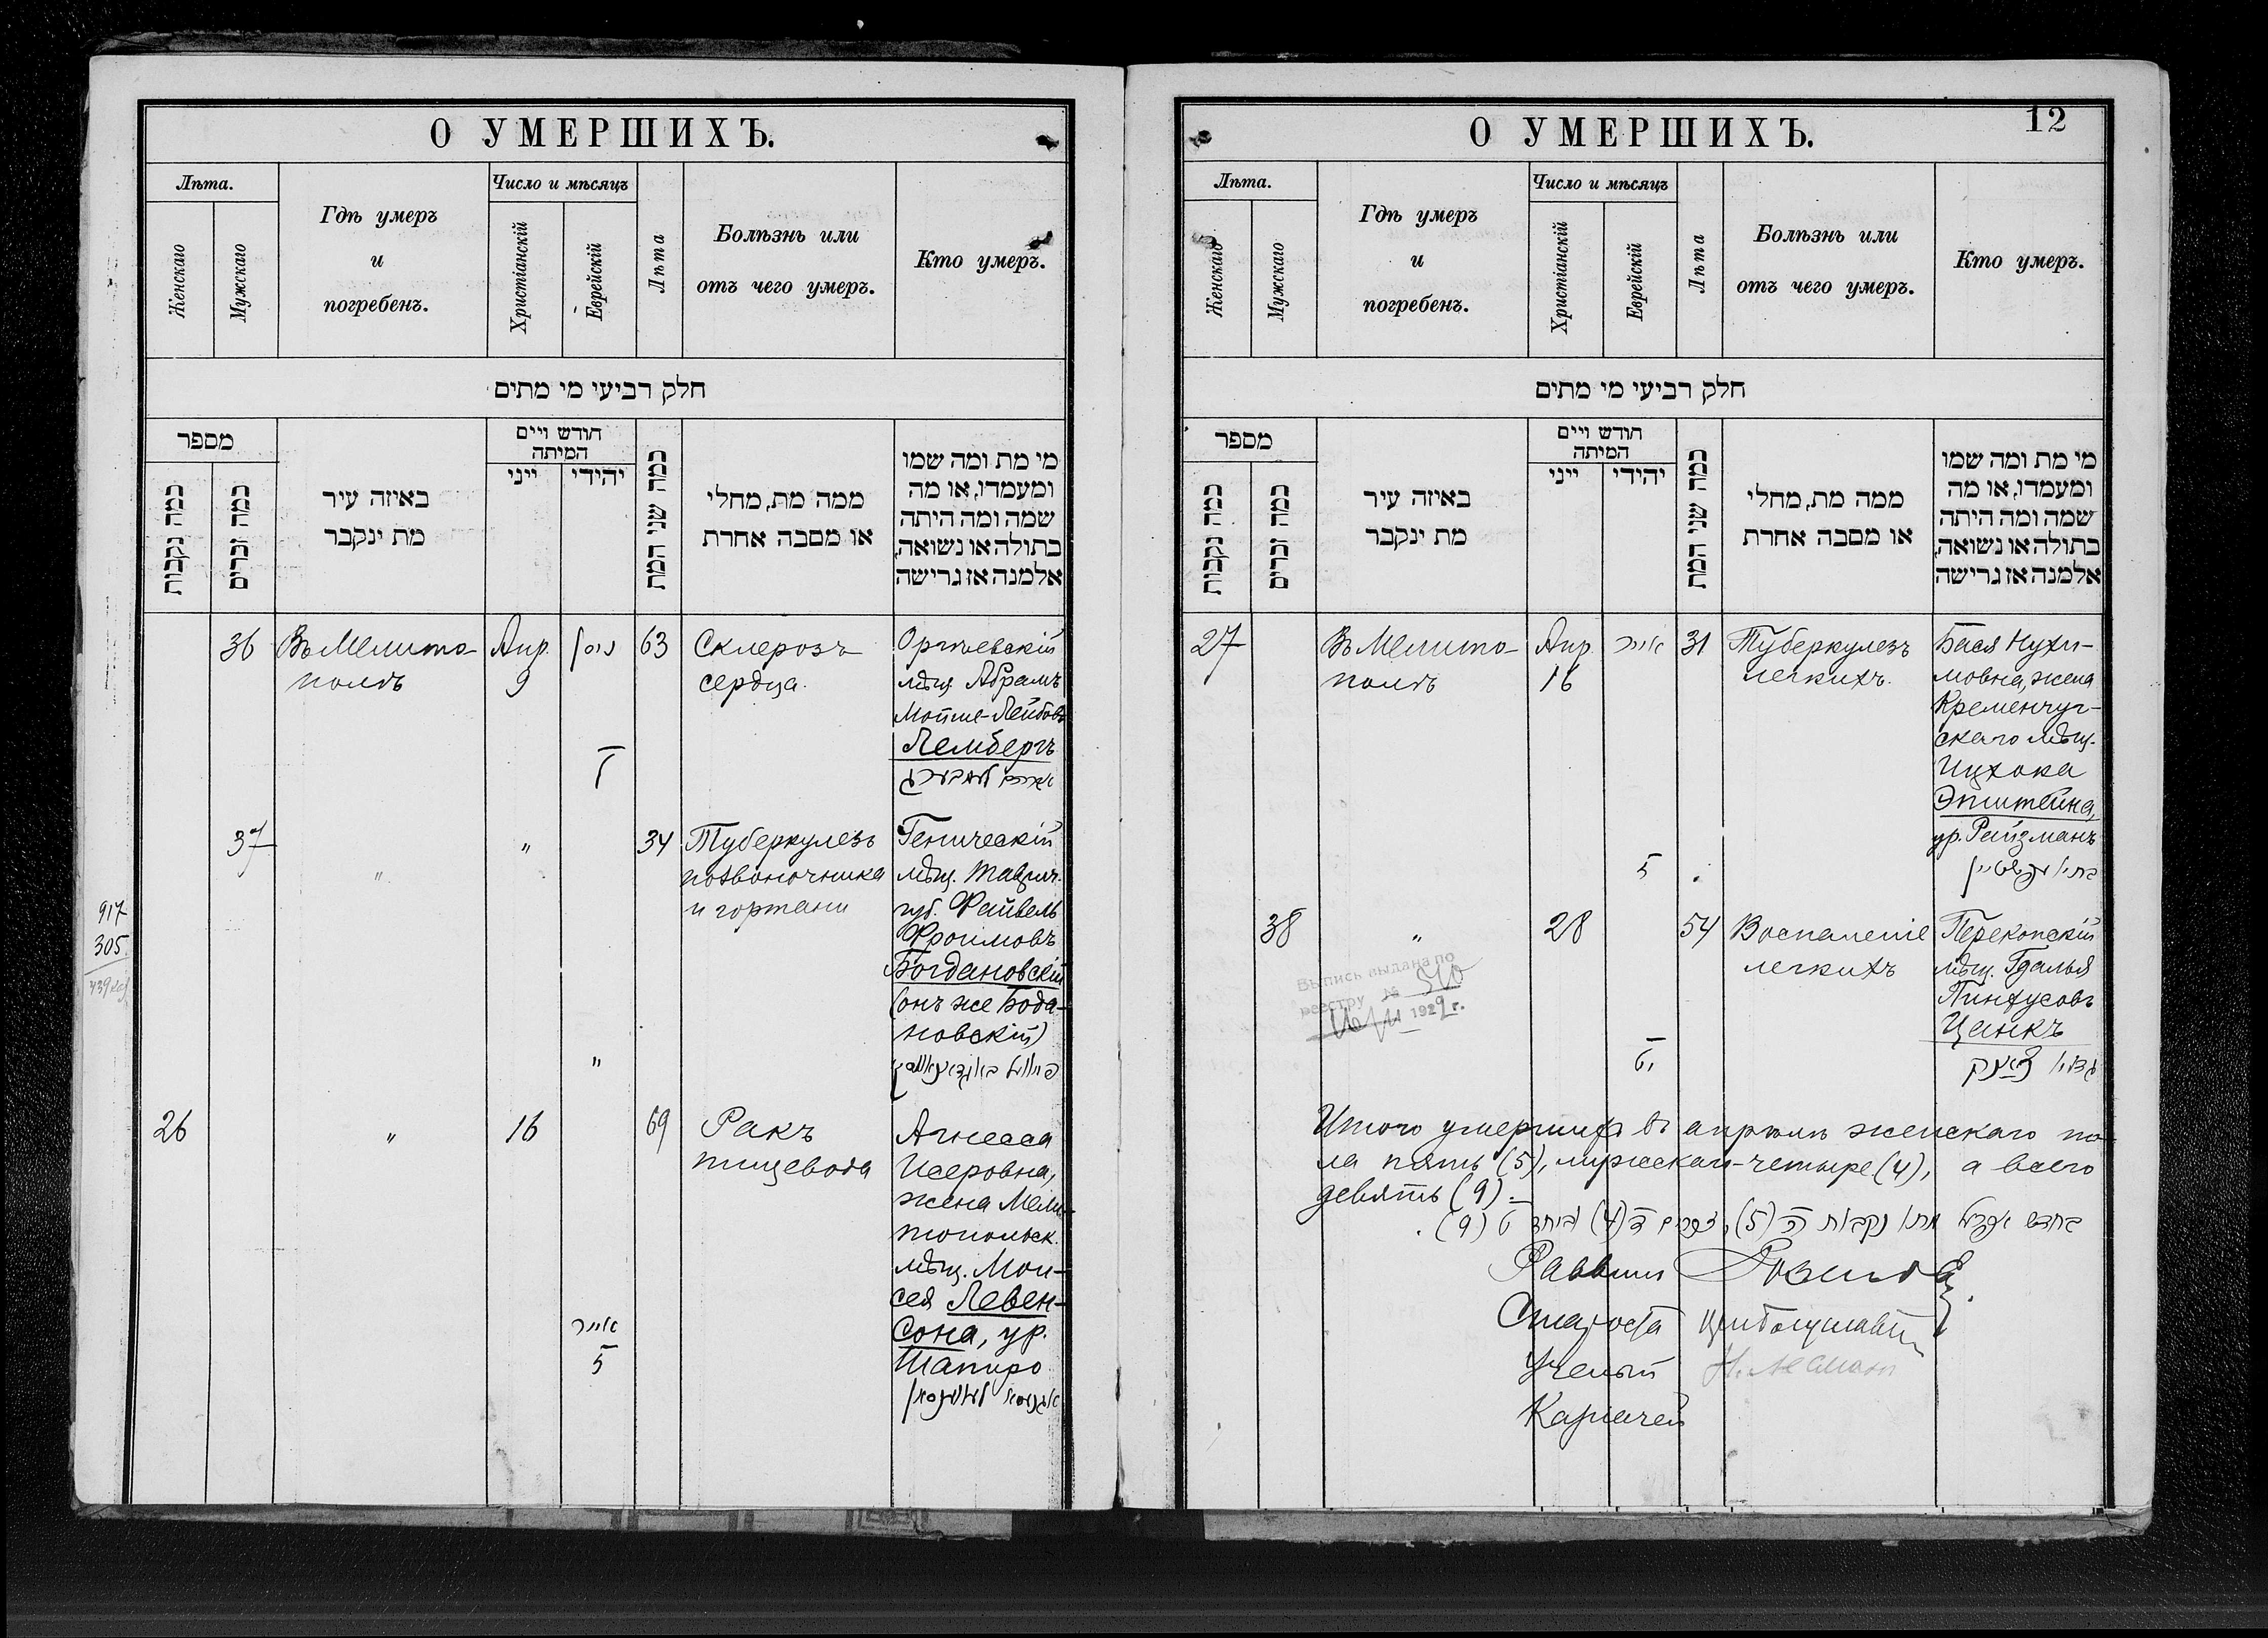 О УМЕРШИХЪ.
Лѣта.
Женскаго
Мужскаго
Гдѣ умеръ
и
погребенъ.
Число и мѣсяцъ
Христіанскій
Еврейскій
Лѣта
Болѣзнь или
отъ чего умеръ.
Кто умеръ.
חלק רביעי מי מתים
מספר
כמה נקבות
כמה זכרים
באיזה עיר
מת ינקבר
חודש ויים
המיתה
ייני
יהידי
כמה שני המת
ממה מת, מחלי
או מסבה אחרת
מי מת ומה שמו
ומעמדו, או מה
שמה ומה היתה
בתולה או נשואה,
אלמנה אז גרישה
36
Въ Мелито-
полѣ
Апр.
9
ניסן
63
Склерозъ
сердца.
Оргѣевскій
мѣщ. Абрамъ
Мошие-Лейбовъ
Лембергъ
37
"
"
"
34
Туберкулезъ
позвоночника
и гортани
Геническій
мѣщ. Таврич.
губ. Файвель
Фроимовъ
Богдановскій
(онъ же Бода-
новскій)
917
305
26
"
16
אייר
69
Ракъ
пищевода
Агнесса
Исеровна,
жена Мели-
топольск.
мѣщ. Мои-
сея Левен-
сона, ур.
Шапиро
12
О УМЕРШИХЪ.
Лѣта.
Женскаго
Мужскаго
Гдѣ умеръ
и
погребенъ.
Число и мѣсяцъ
Христіанскій
Еврейскій
Лѣта
Болѣзнь или
отъ чего умеръ.
Кто умеръ.
חלק רביעי מי מתים
מספר
כמה נקבות
כמה זכרים
באיזה עיר
מת ינקבר
חודש ויים
המיתה
ייני
יהידי
כמה שני המת
ממה מת, מחלי
או מסבה אחרת
מי מת ומה שמו
ומעמדו, או מה
שמה ומה היתה
בתולה או נשואה,
אלמנה אז גרישה
27
Въ Мелито-
полѣ
Апр.
16
אייר
31
Туберкулезъ
легкихъ.
Бася Нухи-
мовна, жена
Кременчуг-
скаго мѣщ.
Ицхока
Эпштейна,
ур. Райзманъ
בתי' עפשטיין
38
"
28
54
Воспаленіе
легкихъ
Перекопскій
мѣщ. Гдалья
Пинхусовъ
Цанкъ
גדלי' צאנק
Выпись выдана по
реестру №
1929 г.
Итого умершихъ въ апрѣлѣ женскаго по-
ла пять (5), мужскаго-четыре (4), а всего
девять (9).
בחדש אפריל מתו נקבות ה (5), זכרים ד (4) וביחד ט (9).
Раввинъ
Староста
Ученый
Казначей